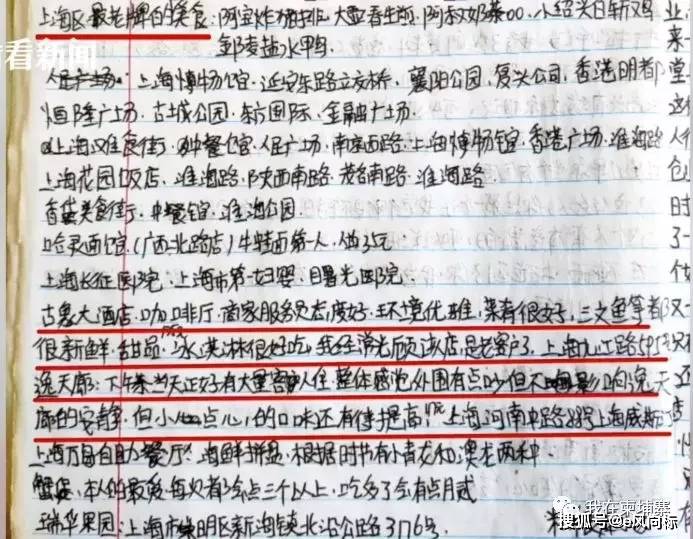 看看新闻
上海区最老牌的美食:阿宝炸猪排 大壶春生煎 阿叔奶茶00 小绍兴白斩鸡
盐水鸭
人民广场. 上海博物馆. 延安东路立交桥. 襄阳公园. 复兴公司. 香港明都
恒隆广场. 古城公园. 东方国际. 金融广场.
上海美食街 中餐馆. 人民广场. 南京西路. 上海博物馆. 香港广场. 淮海路
上海花园饭店. 淮海路. 陕西南路. 茂名南路. 淮海路.
美食街. 中餐馆. 淮海公园.
哈灵面馆. (广西北路店) 第一人. 25元
上海长征医院. 上海市第一妇婴. 曙光医院.
古象大酒店. 咖啡厅. 商家服务员态度好. 环境优雅. 菜肴很好. 三文鱼等都
很新鲜. 甜品. 冰淇淋很好吃. 我经常光顾该店. 是老客户了. 上海九江路595
逸天廊: 下午茶 当天正好有大量客人入住 整体感觉外围有点吵但不影响逸天
廊的安静. 但小点心的口味还有待提高. 上海河南中路 上海威斯
上海万自助餐厅: 海鲜拼盘. 根据时节有小青龙和澳龙两种
蟹, 本人的最爱 每次都会点三个以上. 吃多了会有点
瑞华果园: 上海市崇明区新海镇北沿公路3176号.
我在柬埔寨
搜狐号@风向标